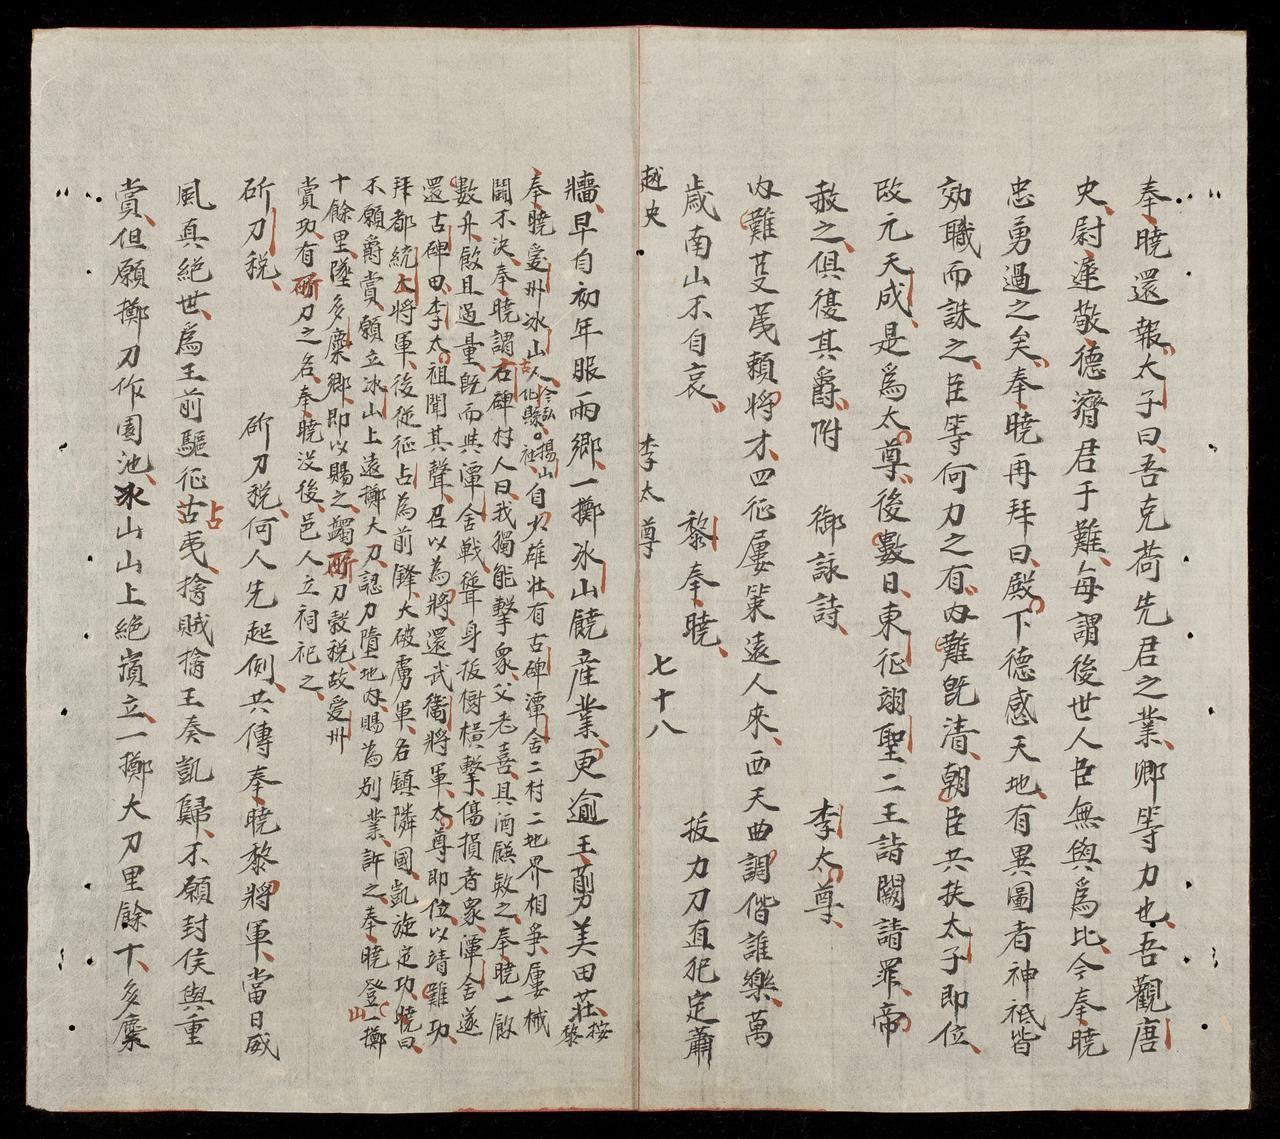 奉曉還報太子曰吾克荷先君之業卿等力也吾觀唐
史尉遲敬德濟君于難每謂後世人臣無與爲比今奉曉
忠勇過之矣奉曉再拜曰殿下德感天地有異圖者神祇皆
効職而誅之臣等何力之有内難既清朝臣共扶太子即位
改元天成是爲太尊後數日東征翊聖二王詣闕請罪帝
赦之俱復其爵附 御詠詩 李太尊
内難芟荑賴將才四征屢策遠人來西天曲調偕誰樂萬
歲南山不自哀 黎奉曉 扳力刀直犯定蕭
越史 李太尊 七十八
牆早自初年服兩鄉一擲冰山饒産業更逾王剪美田莊按黎
奉曉愛州冰山人今弘化縣楊山社自少雄壯有古碑潭舍二村二地界相爭屢械
鬪不決奉曉謂古碑村人曰我獨能擊衆父老喜具酒饌敘之奉曉一飲
數升飯且過量既而共潭舍戰從聳身扳樹横擊傷損者衆潭舍遂
還古碑田李太祖聞其聲召以為將還武衛將軍太尊即位以靖難功
拜都統大將軍後從征占為前鋒大破虜軍名鎮隣國凱旋定功曉曰
不願爵賞願立冰山上遠擲大刀認刀墮地内賜為别業許之奉曉登山一擲
十餘里墜多麋鄉即以賜之蠲斫刀穀税故愛州
賞功有斫刀之名奉曉没後邑人立祠祀之
斫刀税 斫刀税何人先起例共傳奉曉黎將軍當日威
風真絶世爲王前驅征占夷擒賊擒王奏凱歸不願封侯與重
賞但願擲刀作園池氷山山上絶嵿立一擲大刀里餘十多麋